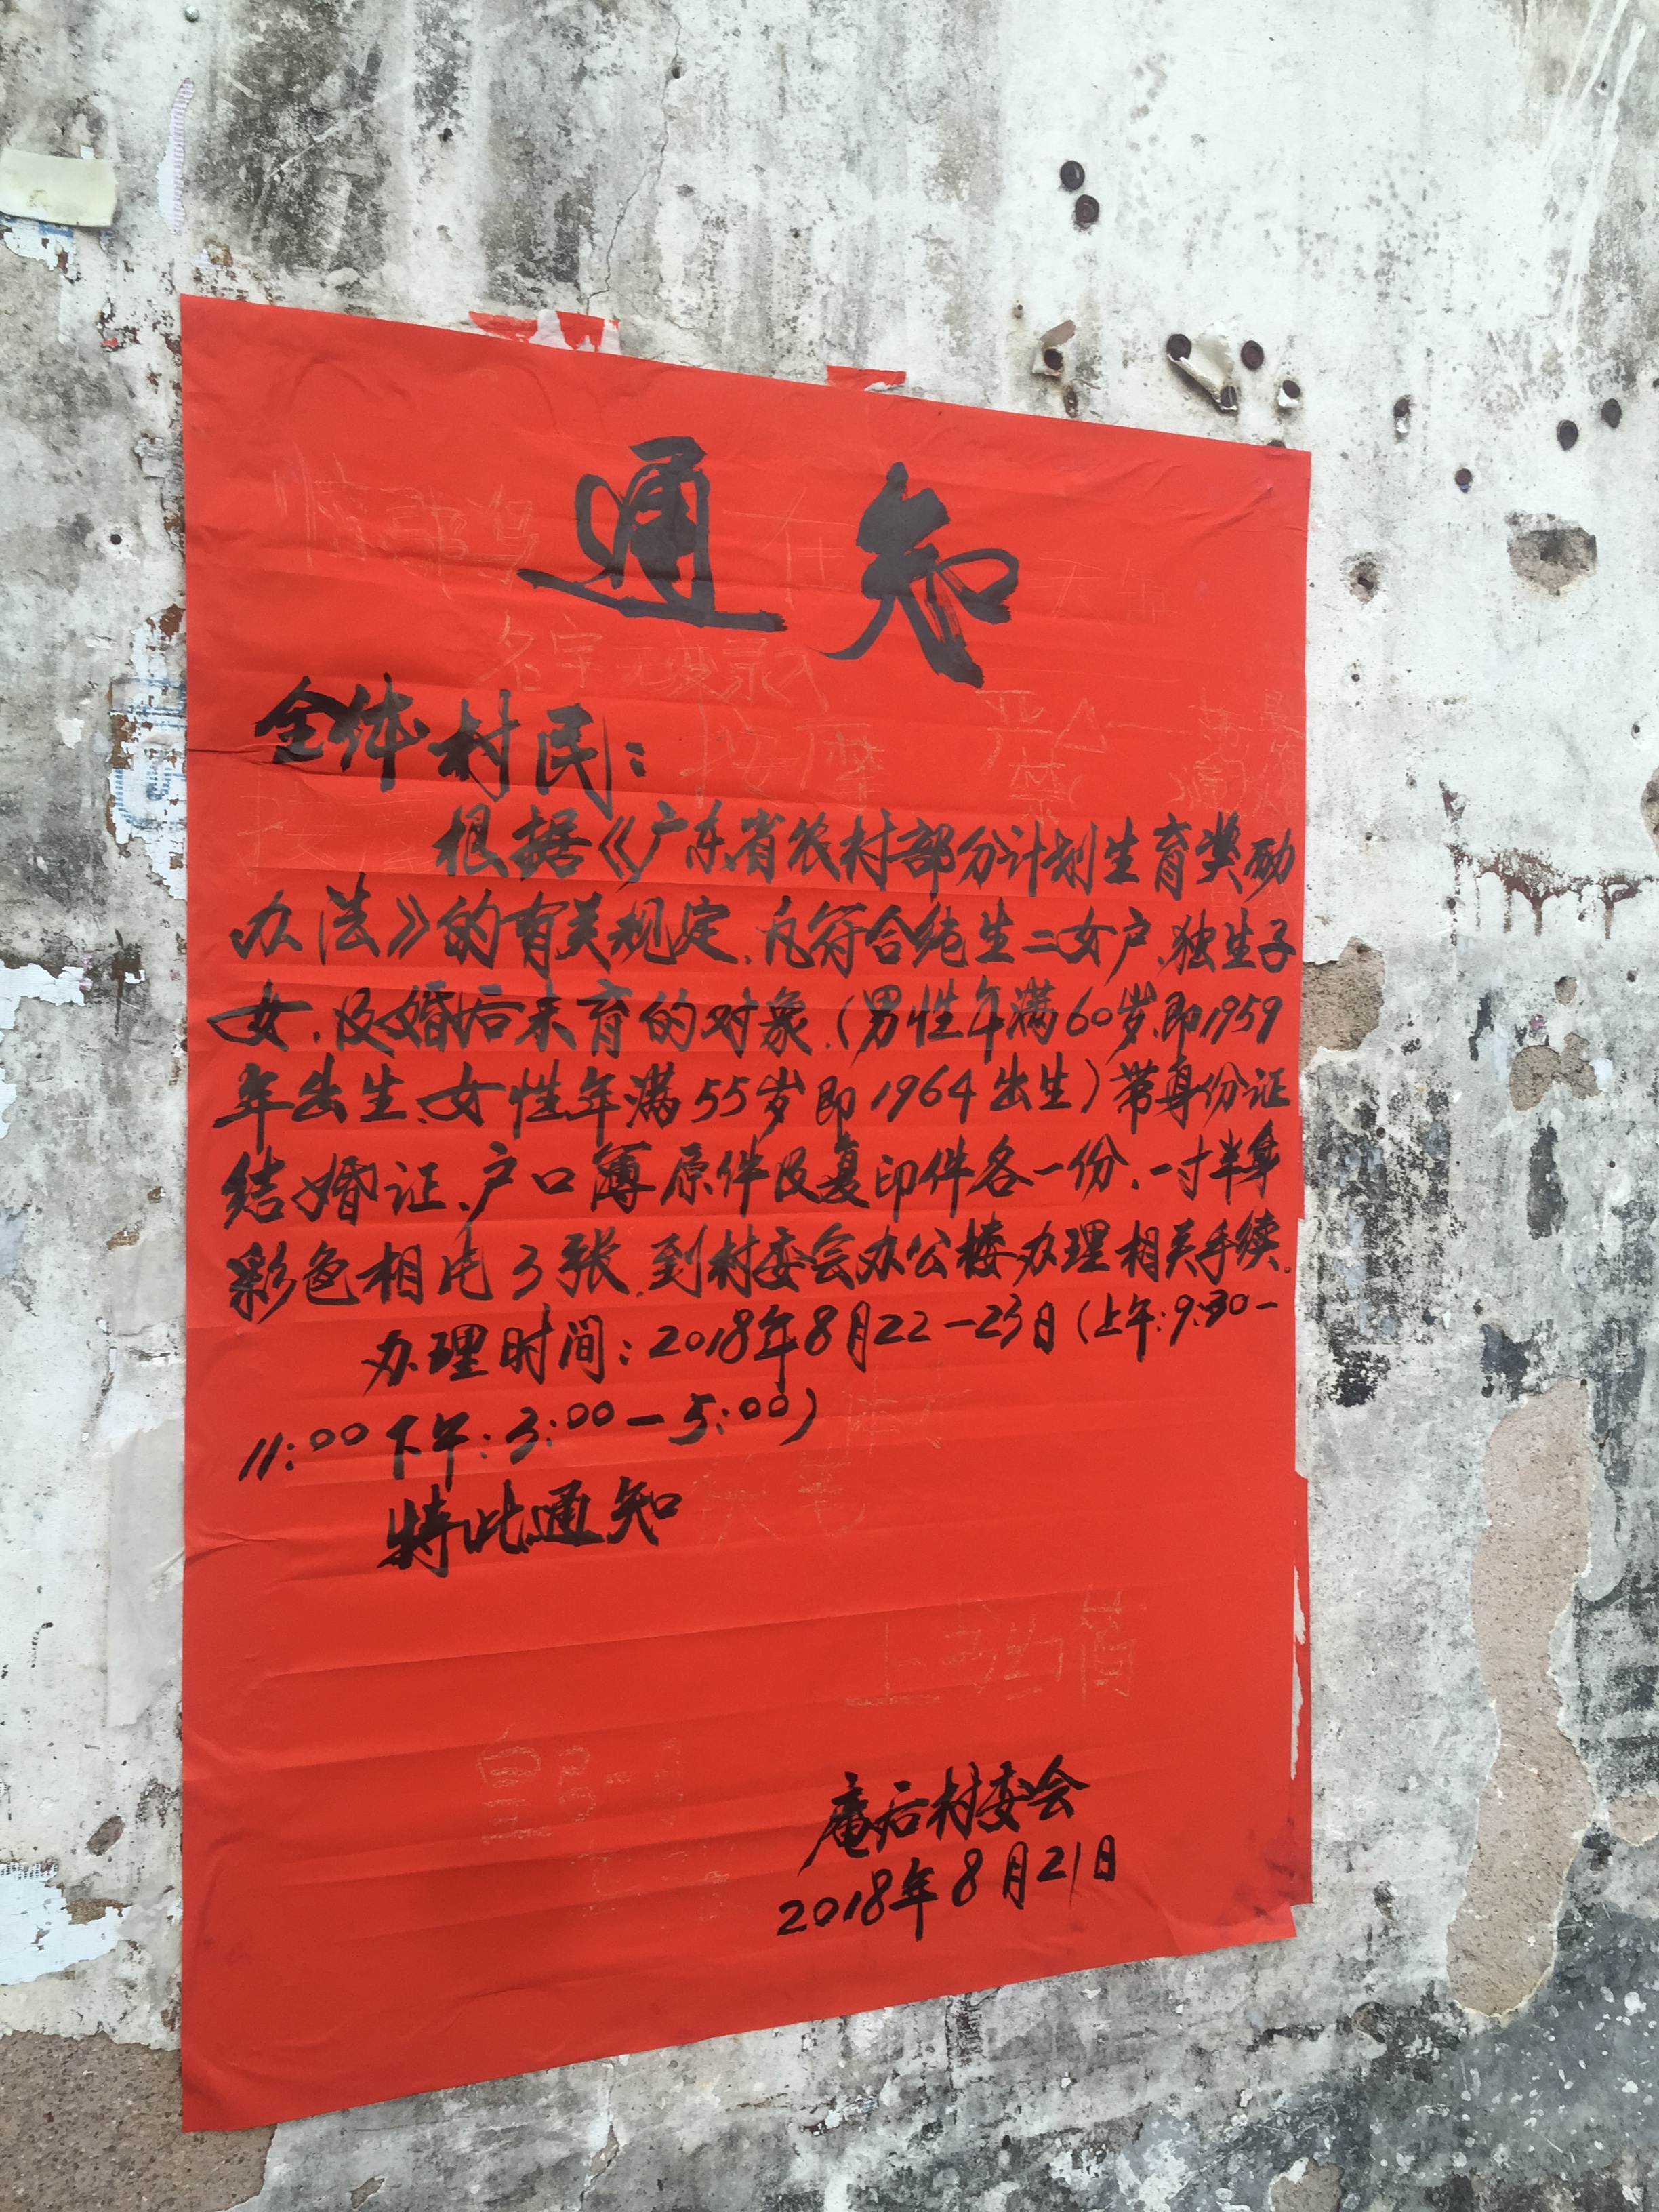 通知
全体村民：
根据《广东省农村部分计划生育奖励
办法》的有关规定，凡符合纯生二女户、独生子
女、及婚后未育的对象，（男性年满60岁、即1959
年出生、女性年满55岁即1964出生）带身份证
结婚证、户口簿原件及复印件各一份，一寸半身
彩色相片3张，到村委会办公楼办理相关手续。
办理时间：2018年8月22-23日（上午：9:30-
11:00下午：3:00-5:00）
特此通知
庵后村委会
2018年8月21日